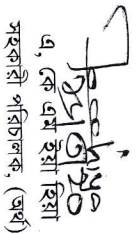 এ, কে এম ইয়া হিয়া
সহকারী পরিচালক, (অর্থ)